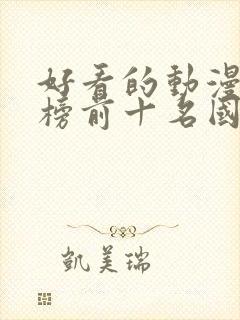 好看的動漫
榜前十名國
凱美瑞